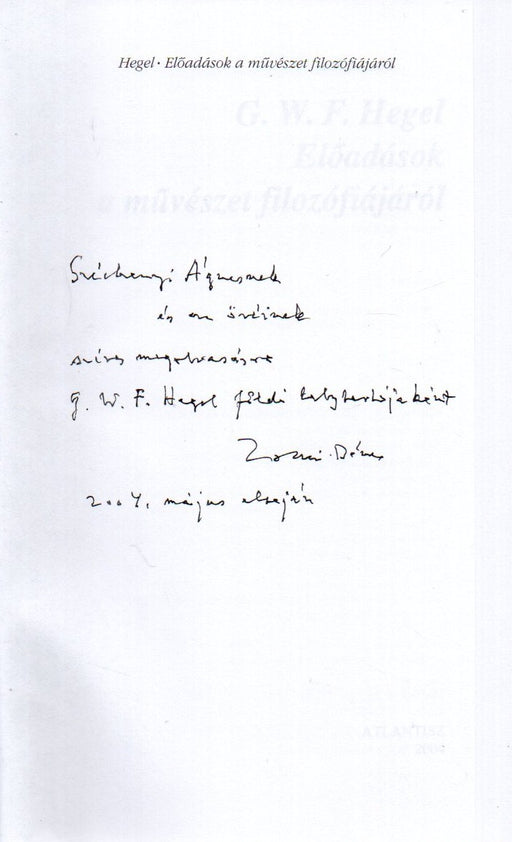 Hegel · Előadások a művészet filozófiájáról
G. W. F. Hegel
Előadások
a művészet filozófiájáról
Széchenyi Ágnesnek
és az övéinek
szíves megolvasásra
G. W. F. Hegel földi helytartójaként
Zoltai Dénes
2004. május elsején
ATLANTISZ
2004